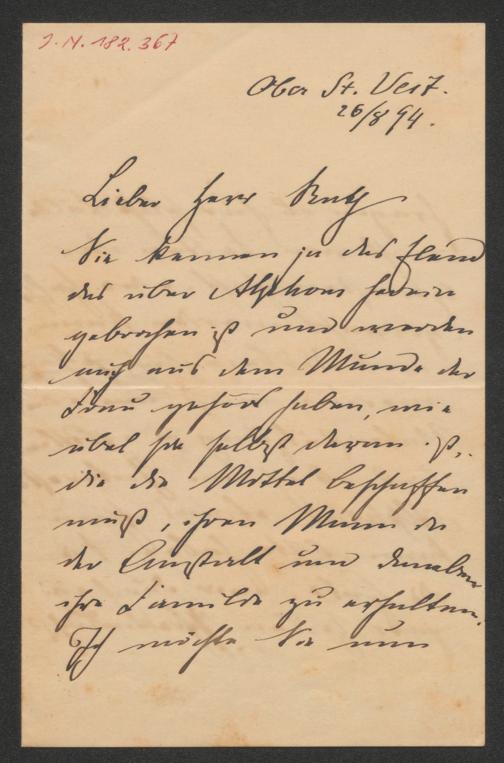 J. N. 182.367
Ober St. Veit.
26/8 94.
Lieber Herr
Sie kennen ja das Elend
das über Alphons herein
gebrochen ist und werden
auch aus dem Munde der
Frau gehört haben, wie
übel sie selbst daran ist,
die die Mittel beschaffen
muß, ihren Mann in
der Anstalt und daneben
ihre Familie zu erhalten.
Ich möchte Sie nun